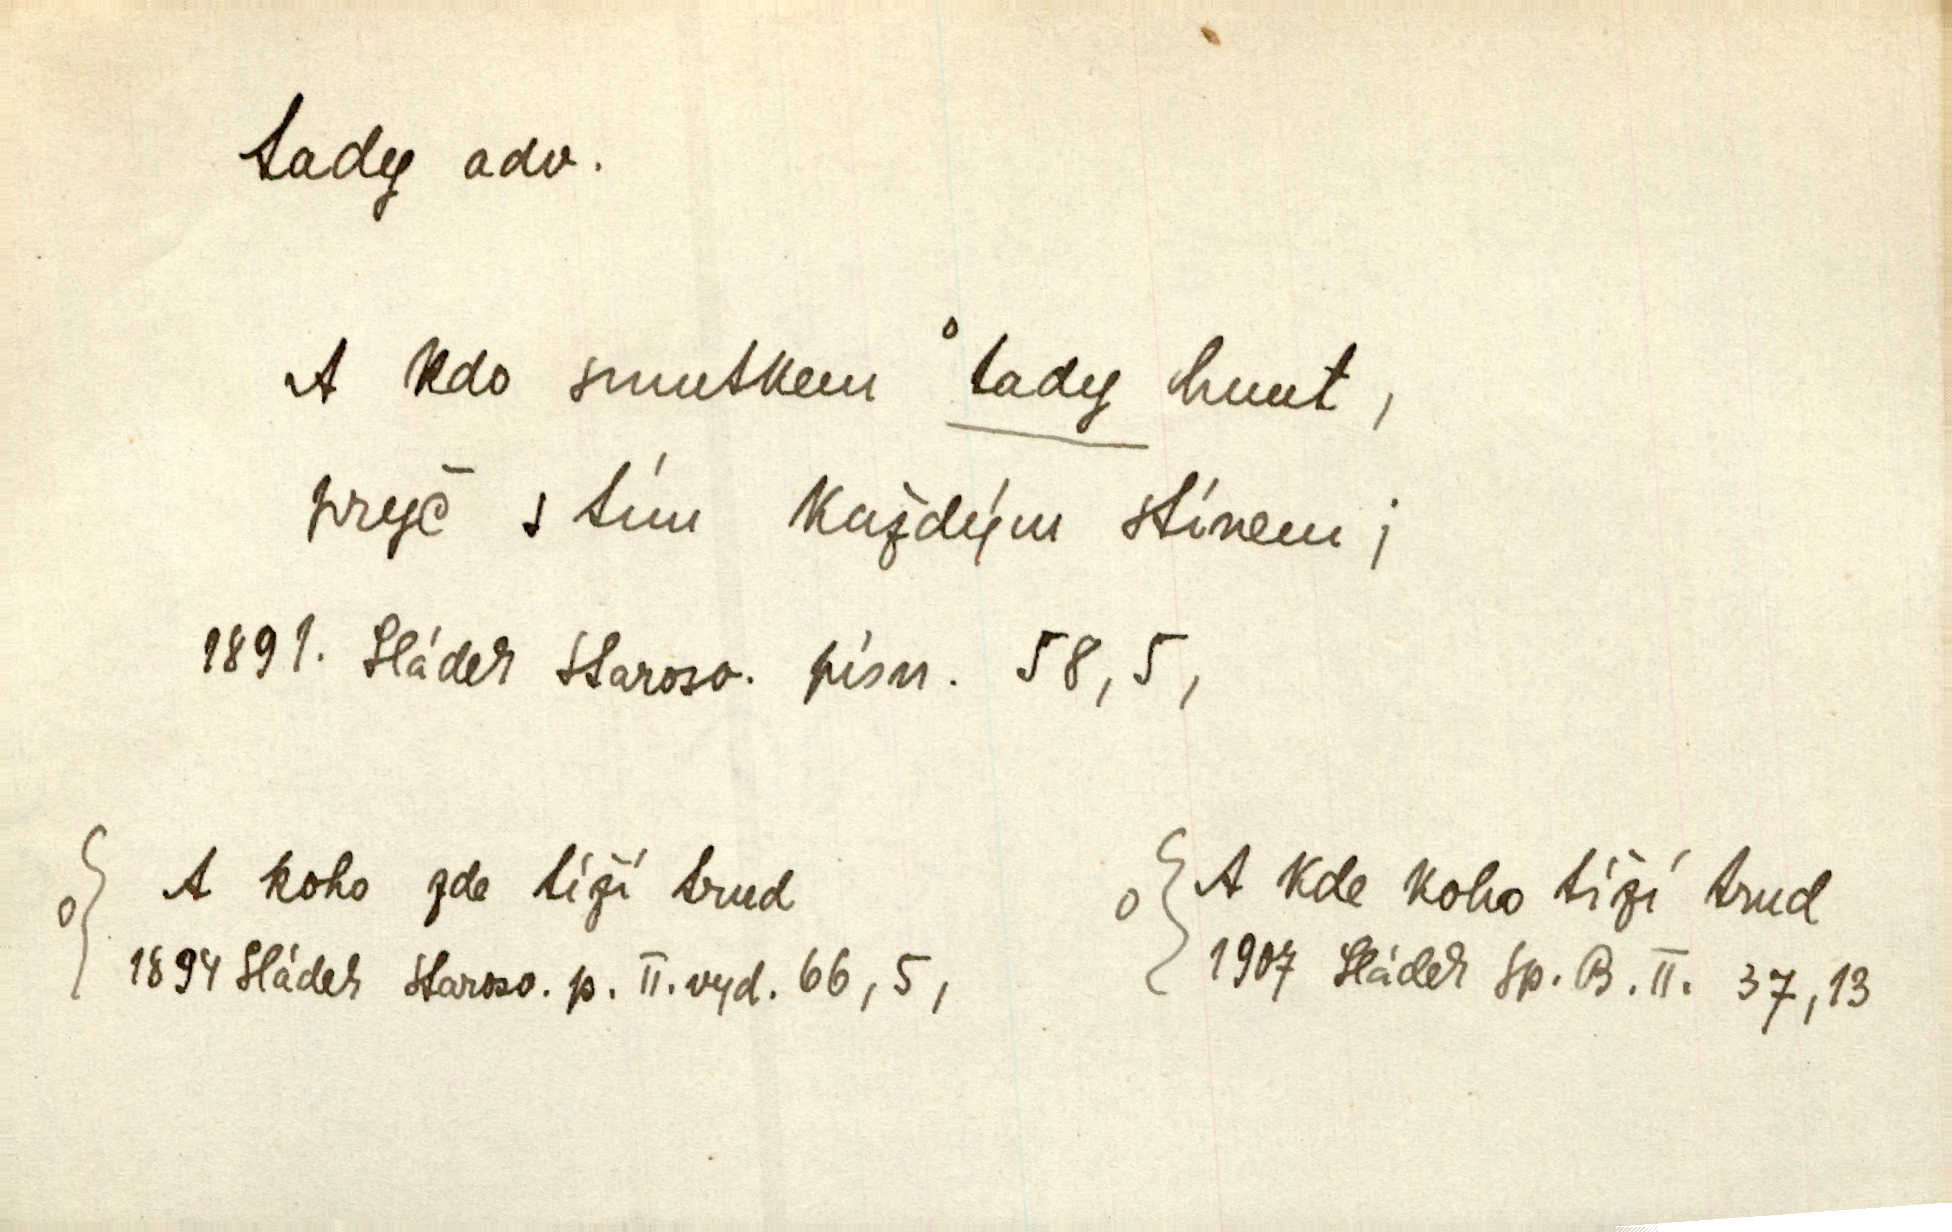 tady adv.
A kdo smutkem °tady hnut,
pryč s tím každým stínem;
1891. Sládek Starosv. písn. 58,5,
A koho zde tíží trud
1894 Sládek Starosv. p. II. vyd. 66,5,
A kde koho tíží trud
1907 Sládek Sp. B. II. 37,13